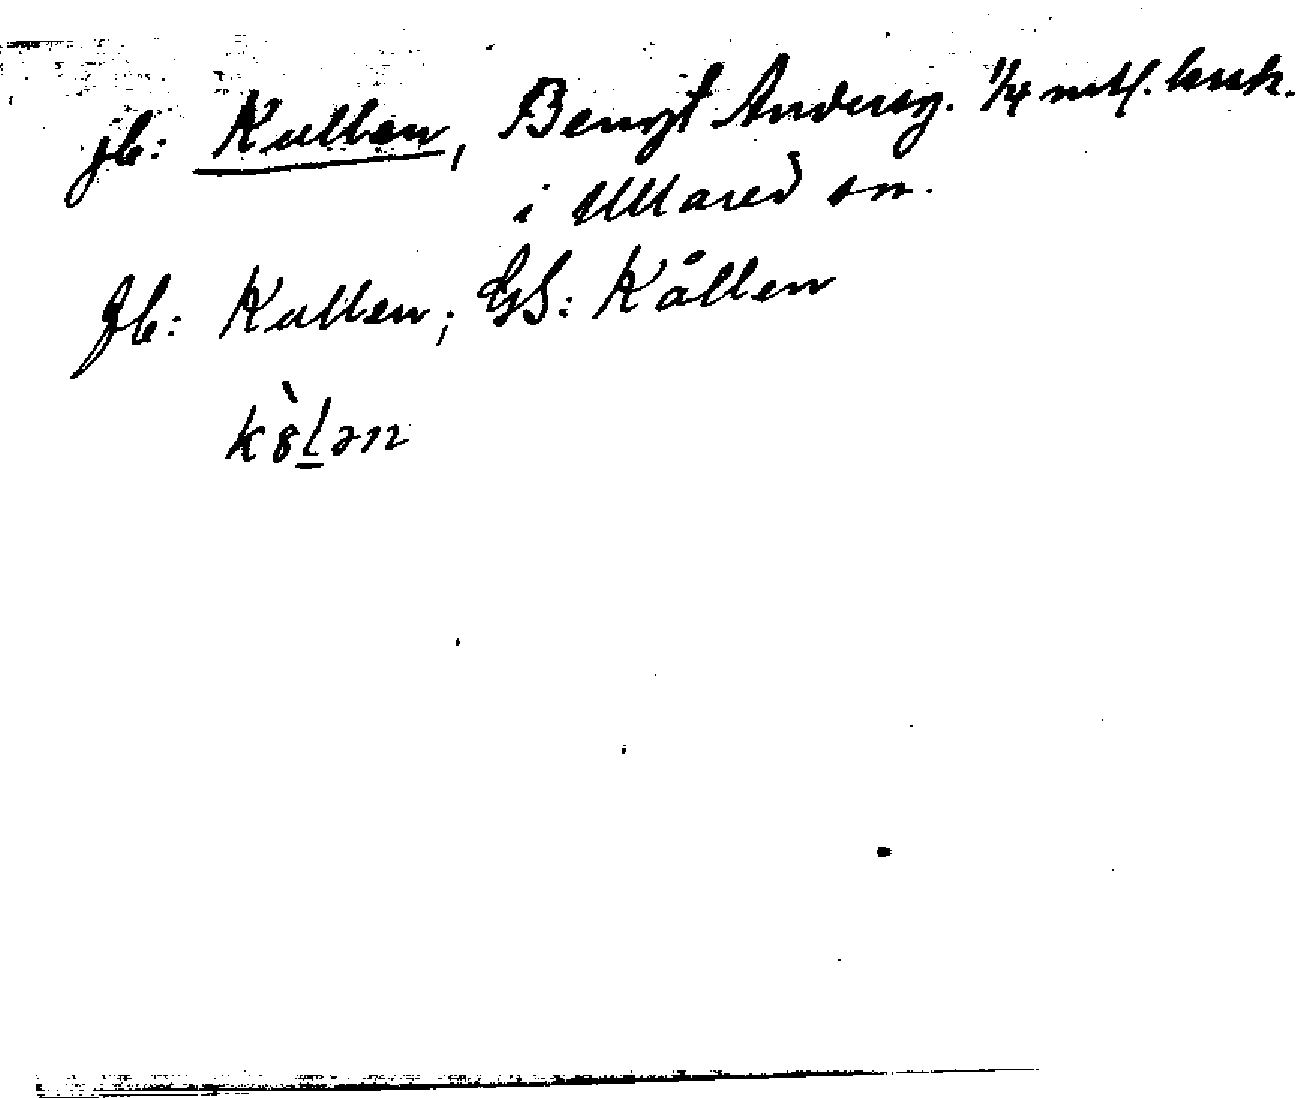 jb: Kullen, Bengt Andersg. 1/4 mtl. krsk.
i Ullared sn.
Jb: Kullen; GS: Kållen
kòlən